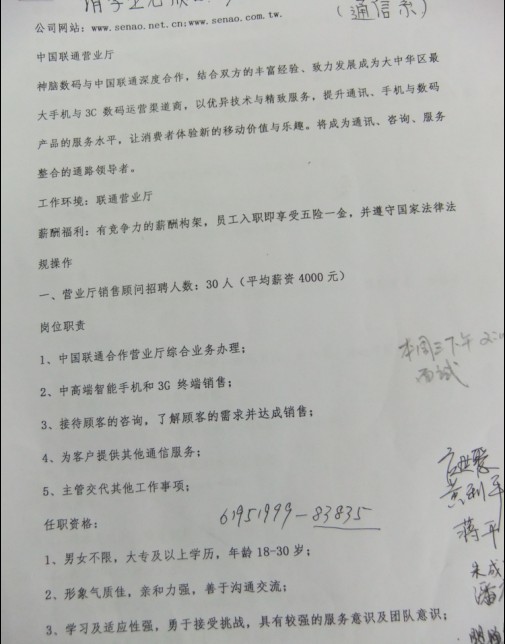 （通信系）
公司网站：www.senao.net.cn;www.senao.com.tw.
中国联通营业厅
神脑数码与中国联通深度合作，结合双方的丰富经验、致力发展成为大中华区最
大手机与 3C 数码运营渠道商，以优异技术与精致服务，提升通讯、手机与数码
产品的服务水平，让消费者体验新的移动价值与乐趣。将成为通讯、咨询、服务
整合的通路领导者。
工作环境：联通营业厅
薪酬福利：有竞争力的薪酬构架，员工入职即享受五险一金，并遵守国家法律法
规操作
一、营业厅销售顾问招聘人数：30 人（平均薪资 4000 元）
岗位职责
本周三下午 2:
面试
1、中国联通合作营业厅综合业务办理；
2、中高端智能手机和 3G 终端销售；
3、接待顾客的咨询，了解顾客的需求并达成销售；
4、为客户提供其他通信服务；
5、主管交代其他工作事项；
61951999-83835
蒋平
朱成
任职资格：
1、男女不限，大专及以上学历，年龄 18-30 岁；
2、形象气质佳，亲和力强，善于沟通交流；
3、学习及适应性强，勇于接受挑战，具有较强的服务意识及团队意识；